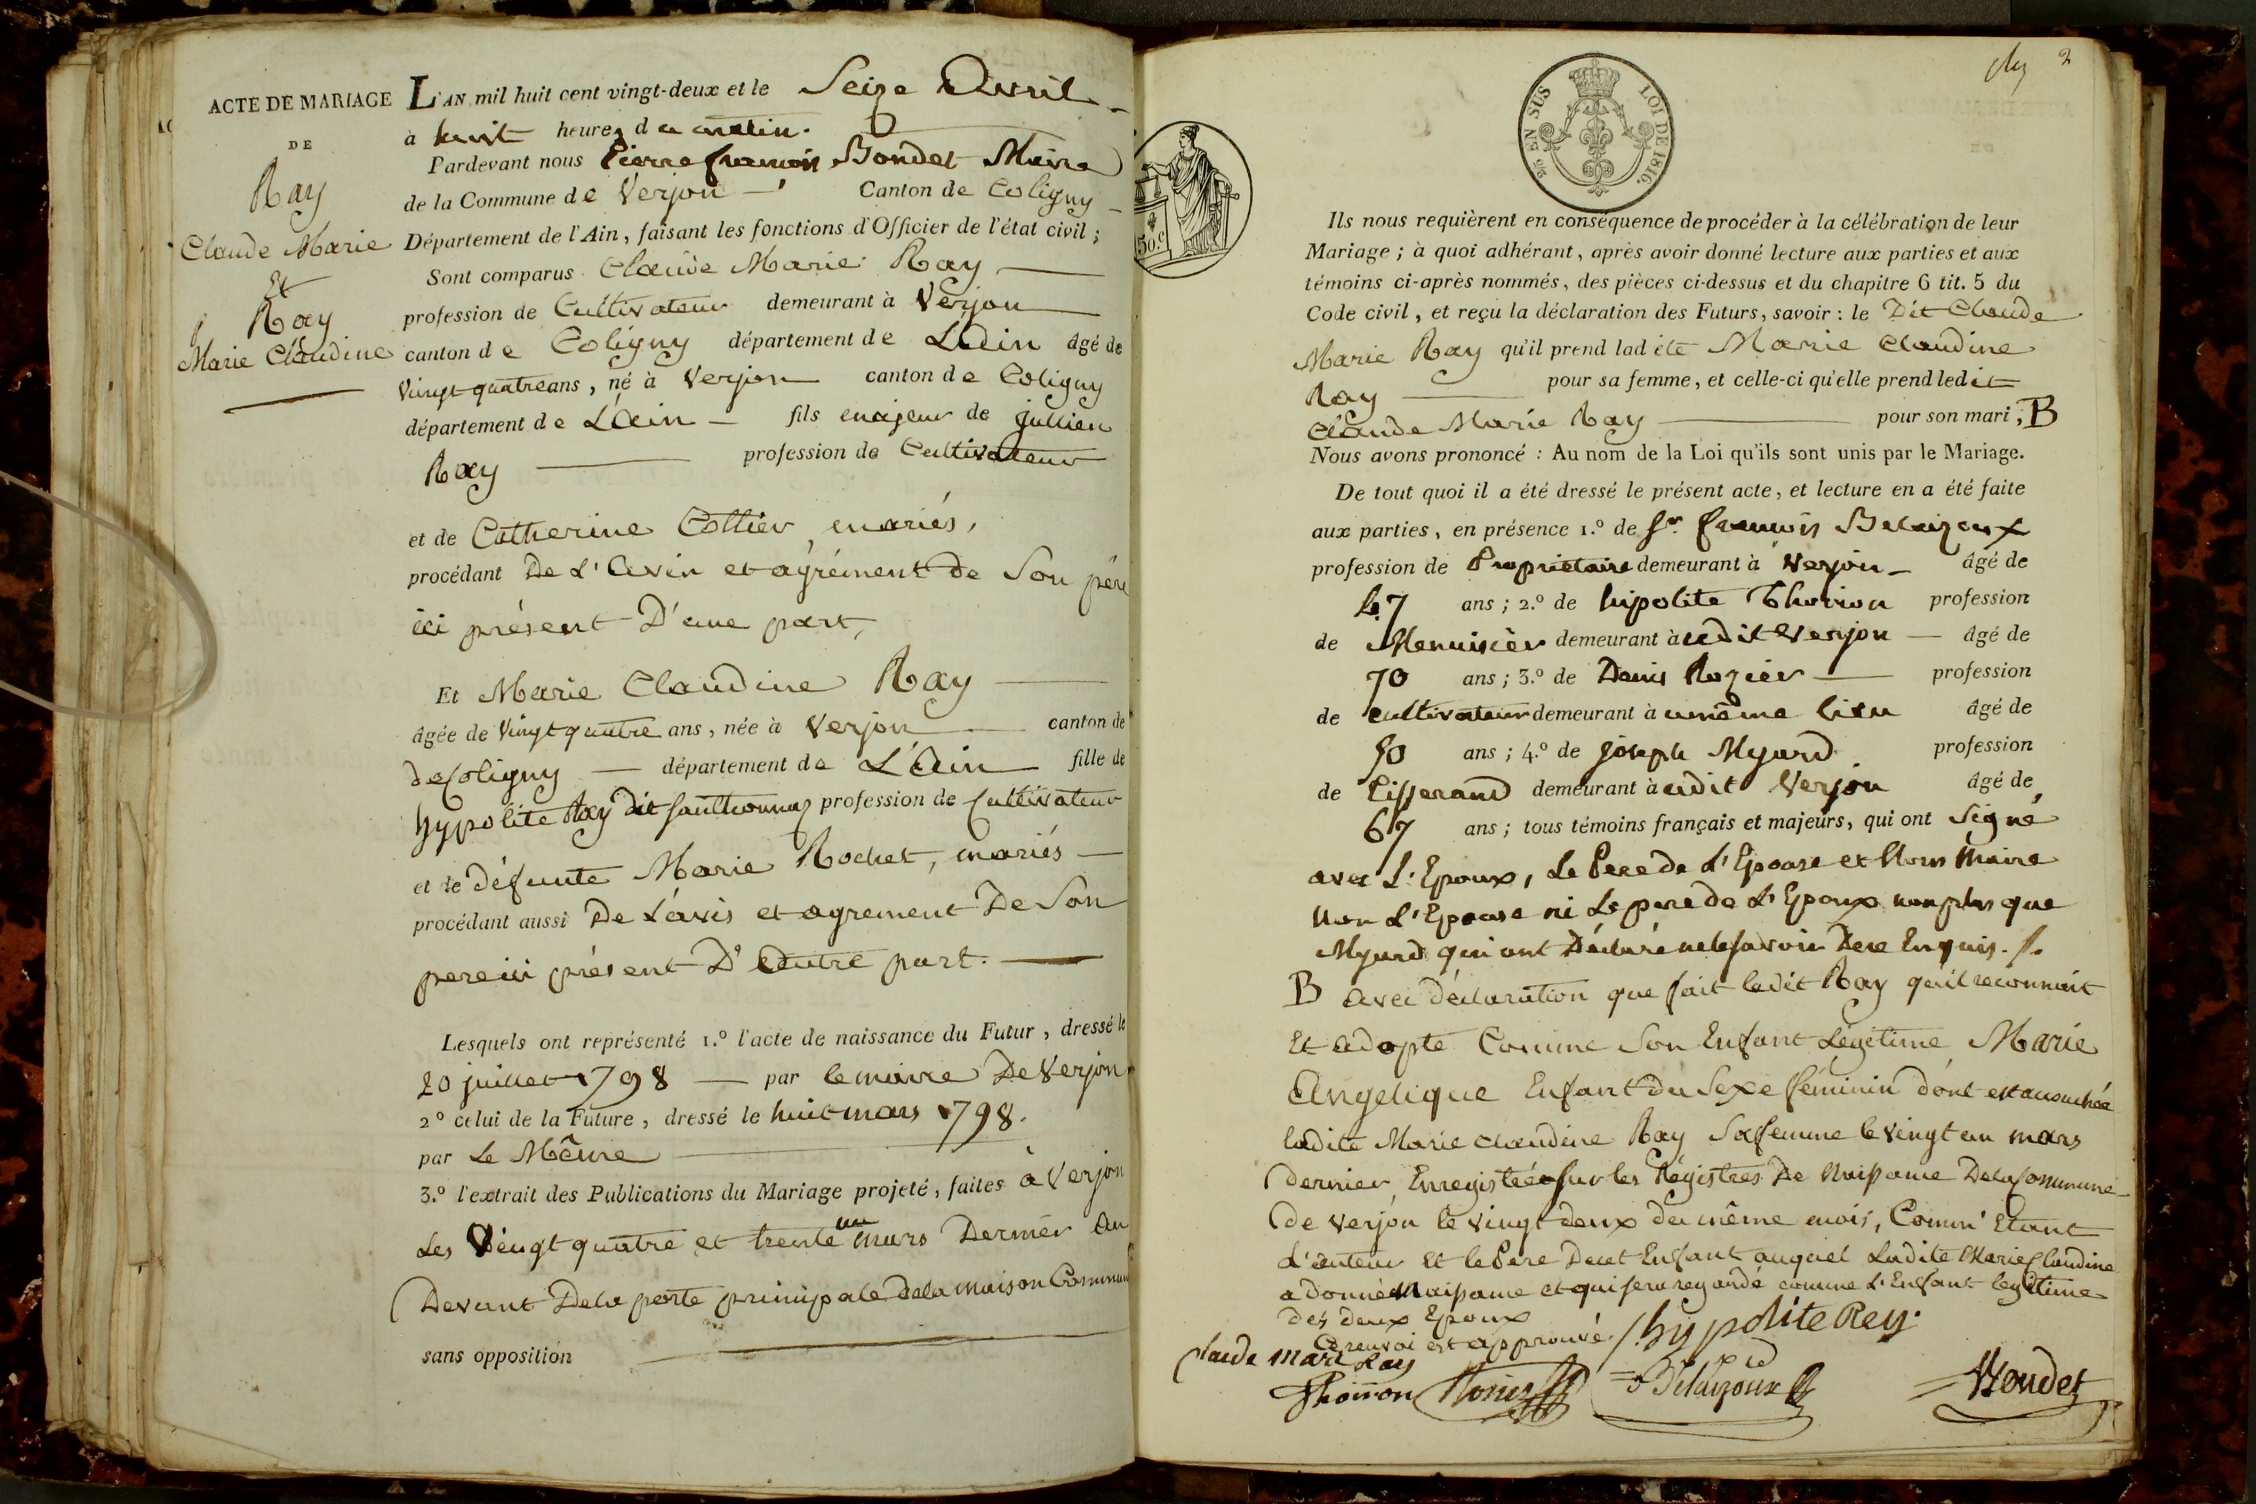 ACTE DE MARIAGE
DE
Ray
Claude Marie
Et
Ray
Marie Claudine
L'AN mil huit cent vingt-deux et le Seize Avril
à huit heures du matin.
Pardevant nous Pierre francois Bondet Maire
de la Commune de Verjon Canton de Coligny
Département de l'Ain, faisant les fonctions d'Officier de l'état civil ;
Sont comparus Claude Marie Ray
profession de Cultivateur demeurant à Verjon
canton de Coligny département de L'Ain âgé de
vingt quatre ans, né à Verjon canton de Coligny
département de L'Ain fils majeur de jullien
Ray profession de Cultivateur
et de Catherine Collier, mariés,
procédant De L'avis et agrément de Son père
ici présent D'une part,
Et Marie Claudine Ray
âgée de vingt quatre ans, née à Verjon canton de
de Coligny département de L'Ain fille de
hypolite Ray dit profession de Cultivateur
et de défunte Marie Rochet, mariés
procédant aussi De L'avis et agrement De Son
pere ici présent D'Autre part.
Lesquels ont représenté 1.º l'acte de naissance du Futur, dressé le
20 juillet 1798 par le maire De Verjon
2º celui de la Future, dressé le huit mars 1798.
par Le Même
3.º l'extrait des Publications du Mariage projeté, faites à Verjon
Les Vingt quatre et trente un mars Dernier Au
Devant De la porte principale de la maison Commune
sans opposition
2
25 EN SUS
LOI DE 1816.
50.C
Ils nous requièrent en conséquence de procéder à la célébration de leur
Mariage ; à quoi adhérant, après avoir donné lecture aux parties et aux
témoins ci-après nommés, des pièces ci-dessus et du chapitre 6 tit. 5 du
Code civil, et reçu la déclaration des Futurs, savoir : le Dit Claude
Marie Ray qu'il prend ladite Marie Claudine
Ray pour sa femme, et celle-ci qu'elle prend ledit
Claude Marie Ray pour son mari, B
Nous avons prononcé : Au nom de la Loi qu'ils sont unis par le Mariage.
De tout quoi il a été dressé le présent acte, et lecture en a été faite
aux parties, en présence 1.º de Sr. francois Belaizoux
profession de Propriétaire demeurant à Verjon âgé de
47 ans ; 2.º de hipolite Thoiron profession
de Menuisier demeurant à udit Verjon âgé de
70 ans ; 3.º de Denis Rozier profession
de cultivateur demeurant à u même lieu âgé de
50 ans ; 4.º de joseph Myard profession
de Tisserand demeurant à udit Verjon âgé de
67 ans ; tous témoins français et majeurs, qui ont Signé
avec L'Epoux, Le Pere de L'Epouse et Nous Maire
Non L'Epouse ni Le pere de L'Epoux non plus que
Myard qui ont Déclaré ne le savoir De ce Enquis.
B avec déclaration que fait ledit Ray qu'il reconnait
Et adopte Comme Son Enfant Légitime Marie
Angelique Enfant du Sexe féminin dont est accouchée
ladite Marie claudine Ray Sa femme le vingt un mars
Dernier, Enregistrée sur les Régistres De Naissance De la Commune
De Verjon le vingt deux du même mois, Comm' Etant
L'auteur Et le Pere De cet Enfant auquel Ladite Marie Claudine
a donné Naissance et qui sera regardé comme L'Enfant legitime
des deux Epoux
Ce renvoi est approuvé
hypolite Rey.
Claude mari Ray
Thoiron Rozier Belaizoux
Bondet